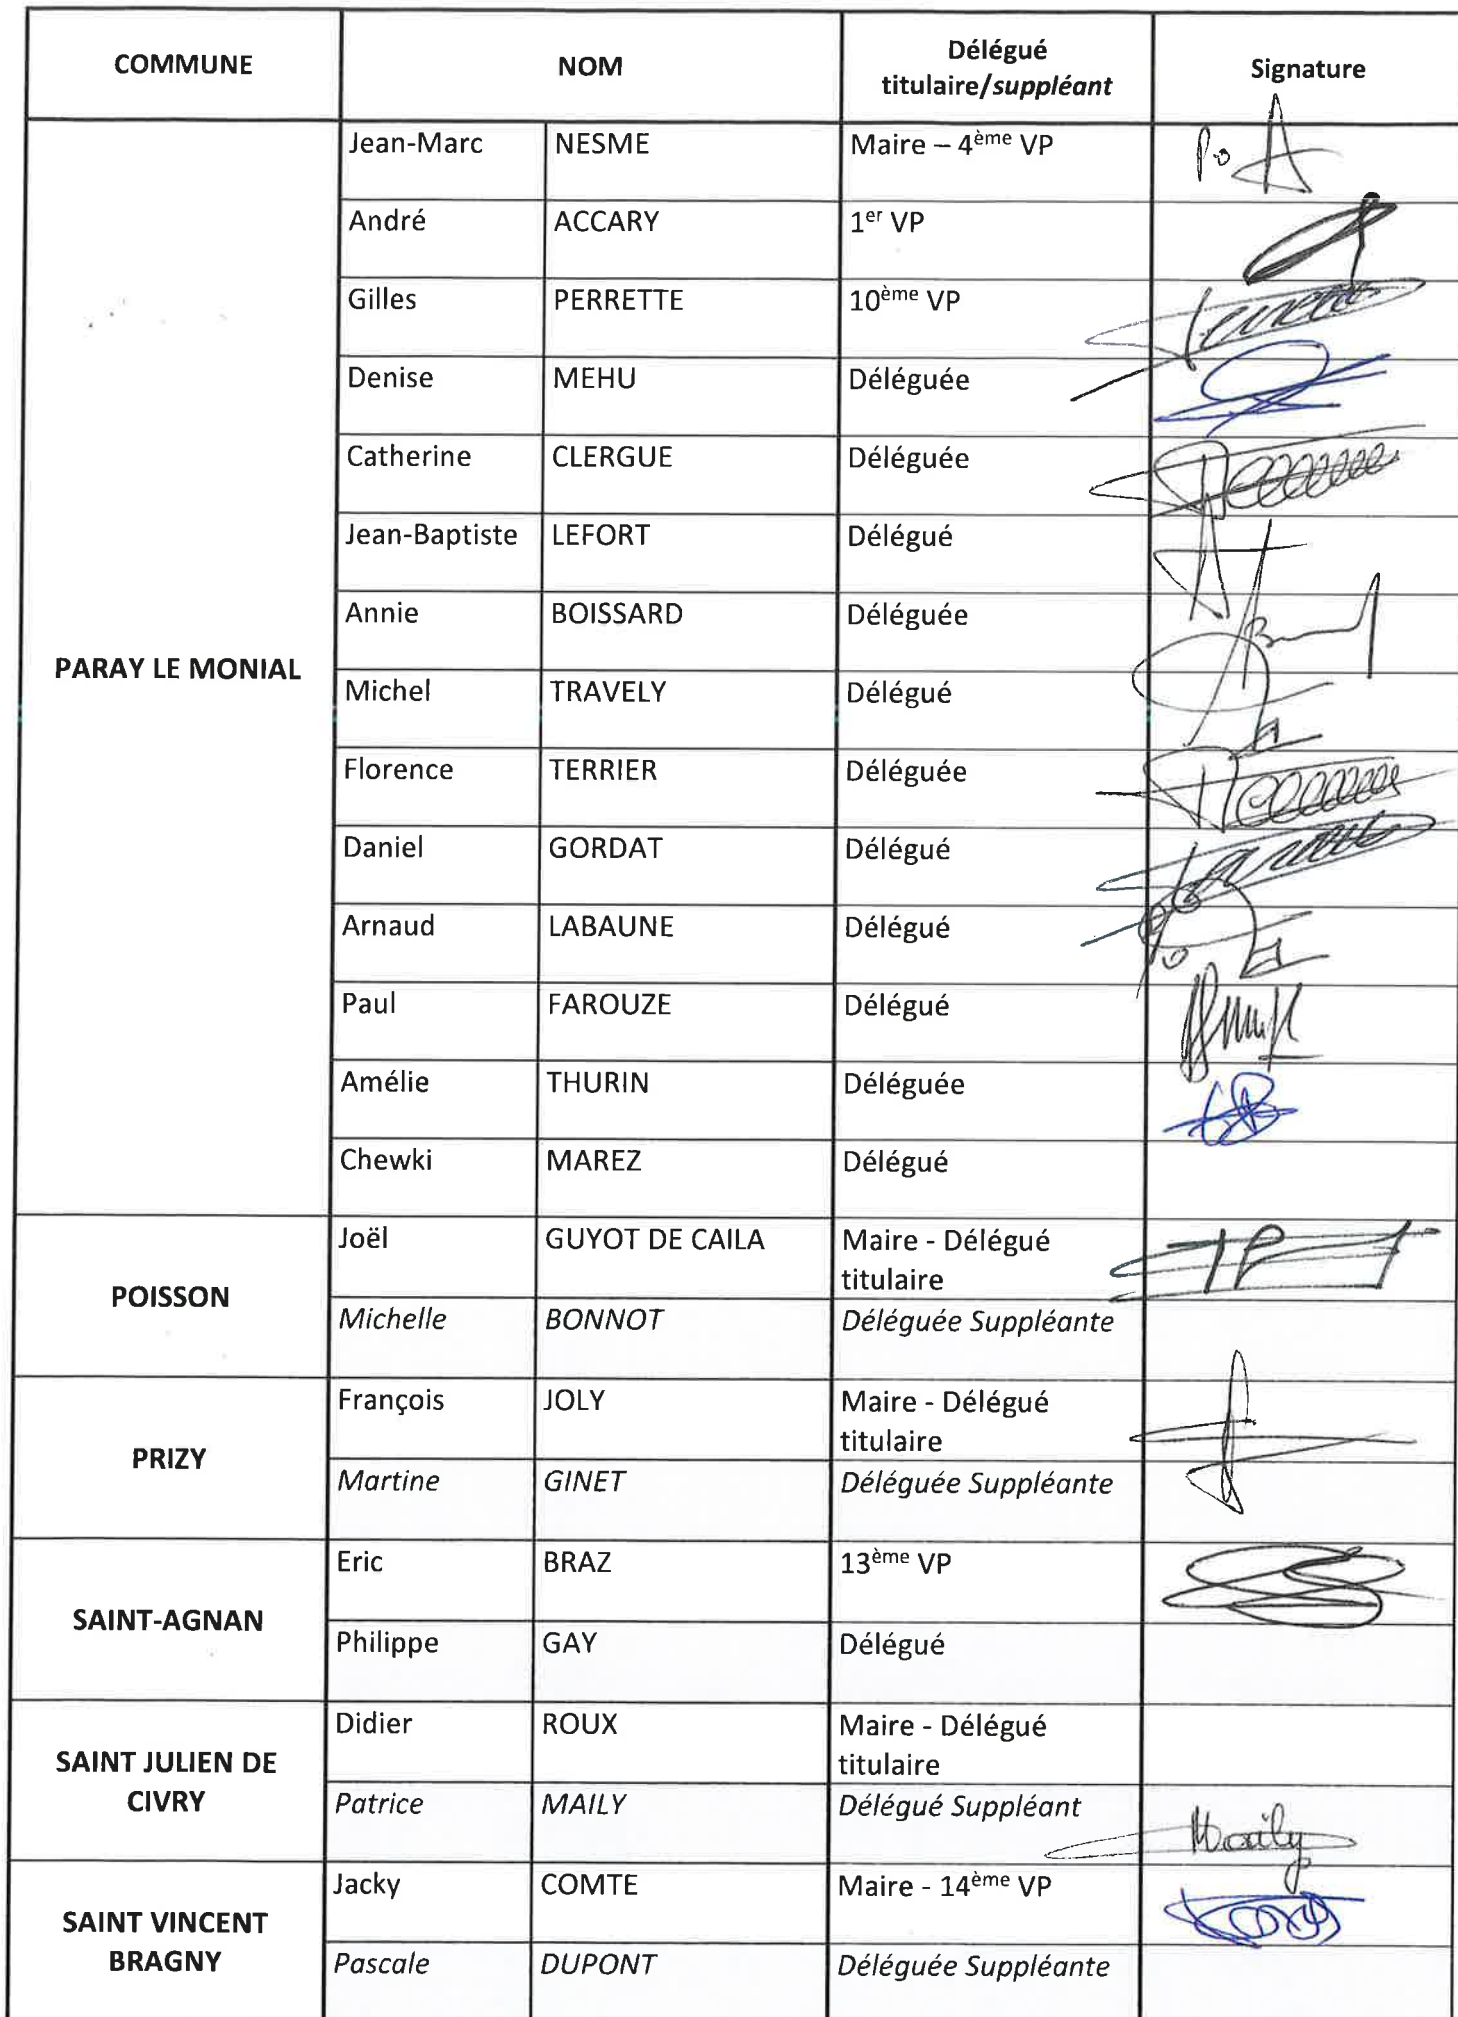 COMMUNE NOM Délégué titulaire/suppléant Signature
PARAY LE MONIAL
Jean-Marc NESME Maire – 4ème VP Po
André ACCARY 1er VP
Gilles PERRETTE 10ème VP
Denise MEHU Déléguée
Catherine CLERGUE Déléguée
Jean-Baptiste LEFORT Délégué
Annie BOISSARD Déléguée
Michel TRAVELY Délégué
Florence TERRIER Déléguée
Daniel GORDAT Délégué
Arnaud LABAUNE Délégué Po
Paul FAROUZE Délégué
Amélie THURIN Déléguée
Chewki MAREZ Délégué
POISSON
Joël GUYOT DE CAILA Maire - Délégué titulaire
Michelle BONNOT Déléguée Suppléante
PRIZY
François JOLY Maire - Délégué titulaire
Martine GINET Déléguée Suppléante
SAINT-AGNAN
Eric BRAZ 13ème VP
Philippe GAY Délégué
SAINT JULIEN DE CIVRY
Didier ROUX Maire - Délégué titulaire
Patrice MAILY Délégué Suppléant Maily
SAINT VINCENT BRAGNY
Jacky COMTE Maire - 14ème VP
Pascale DUPONT Déléguée Suppléante